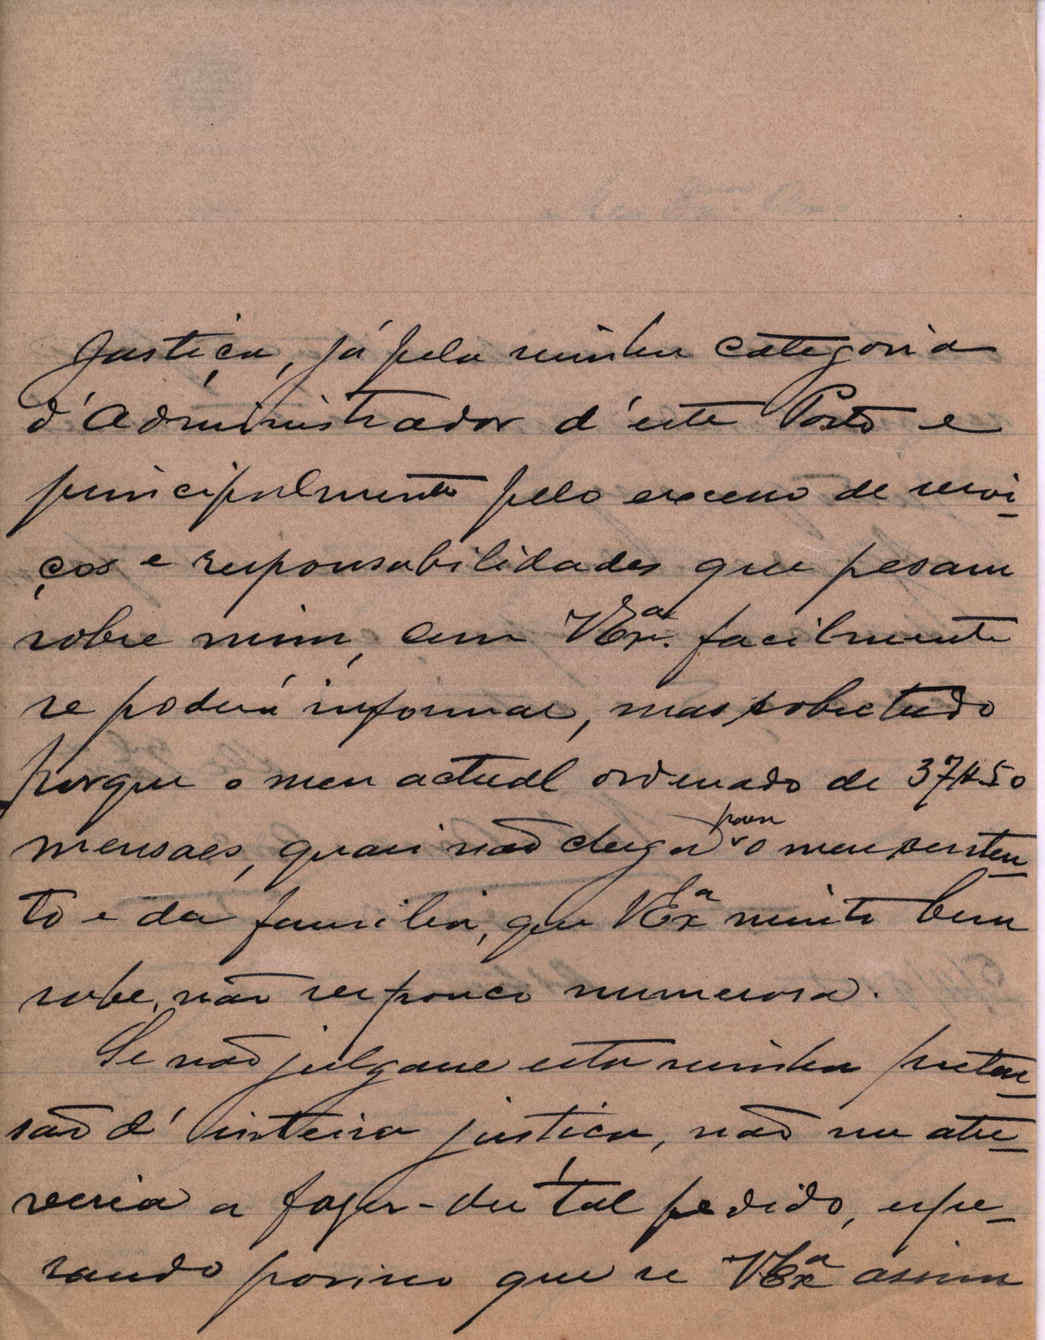 Justiça, já pela minha categoria
d'Administrador d'este Posto e
principalmente pelo excesso de servi-
ços e responsabilidades que pesam
sobre mim, como V Exª. facilmente
se poderá informar, mas sobretudo
porque o meu actual ordenado de 37$50
mensaes, quasi não chega para o meu susten-
to e da familia, que V Exª muito bem
sabe, não ser pouco numerosa.
Se não julgasse esta minha preten-
são d'inteira justiça, não me atre-
veria a fazer-lhe tal pedido, espe-
rando porisso que se V Exª assim